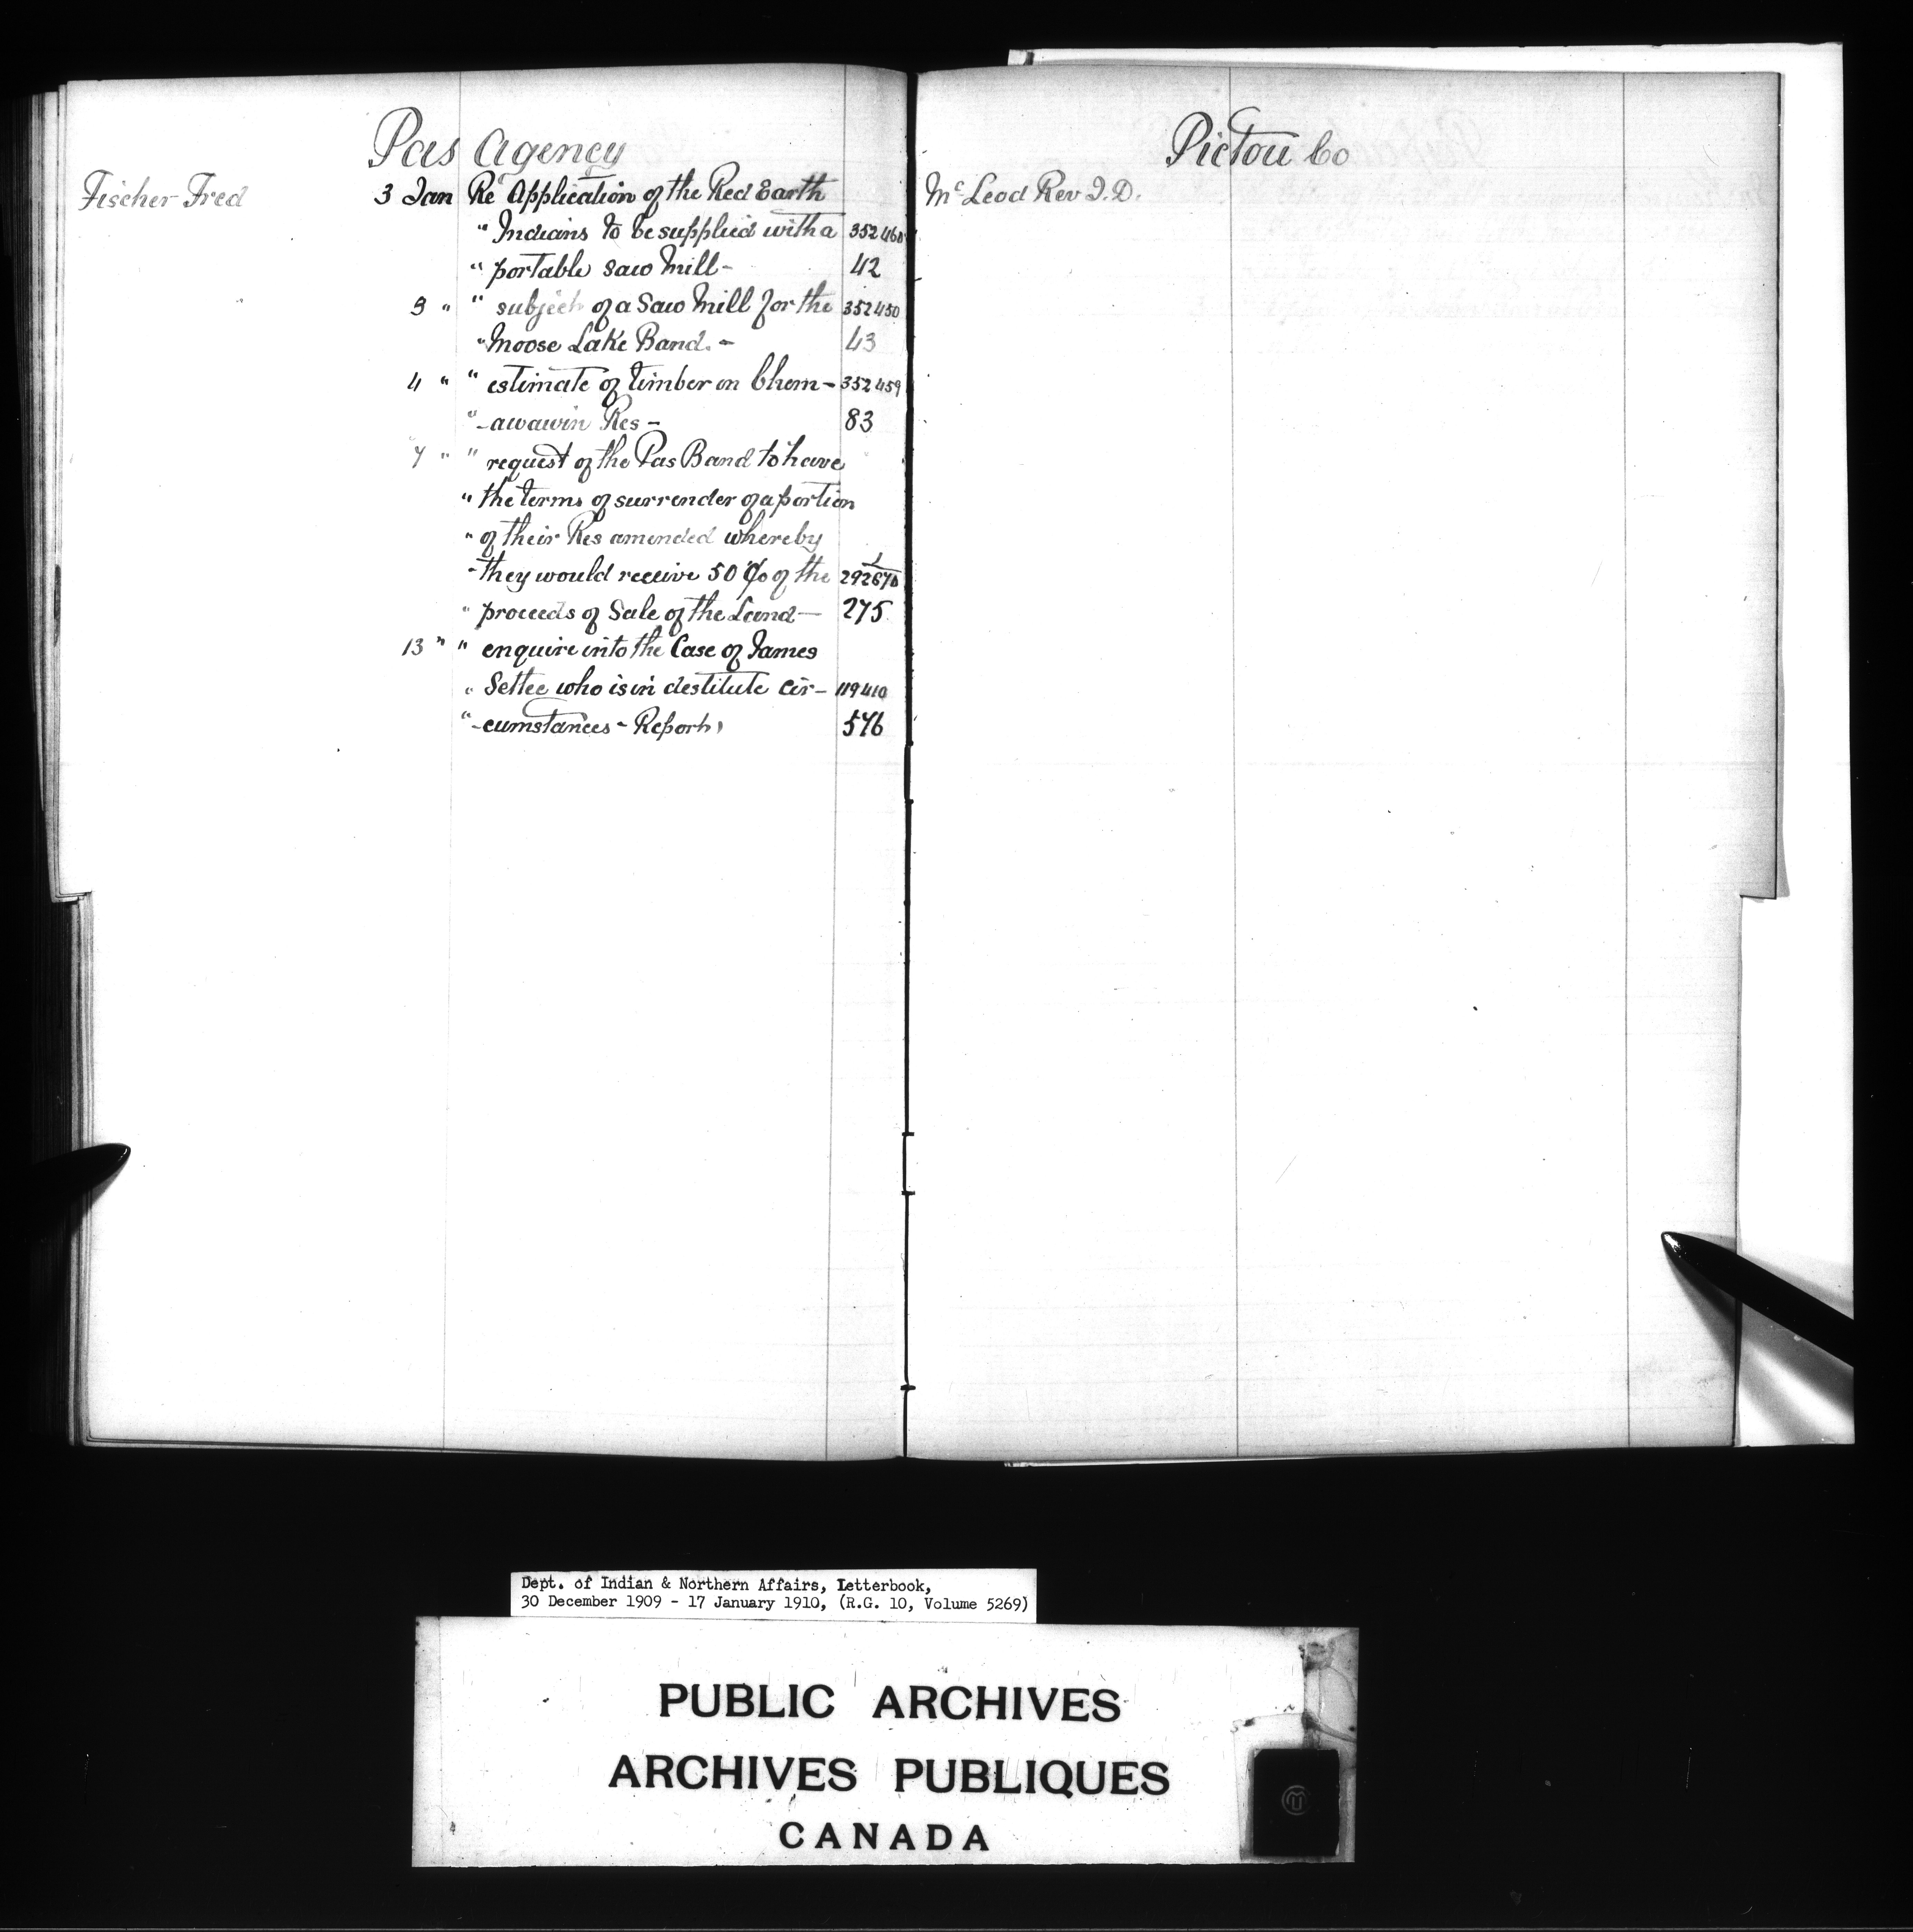 Pas Agency
Fischer Fred 3 Jan Re Application of the Red Earth
" Indians to be supplied with a 352460
" portable saw Mill - 42
3 " " subject of a Saw Mill for the 352450
" Moose Lake Band. - 43
4 " " estimate of timber on Chem- 352459
" -awawin Res - 83
7 " " request of the Pas Band to have
" the terms of surrender of a portion
" of their Res amended whereby
" they would receive 50 % of the 292670
" proceeds of Sale of the Land - 275
13 " " enquire into the Case of James
" Settee who is in destitute cir- 119410
" -cumstances - Report 576
Pictou Co
McLeod Rev J.D.
Dept. of Indian & Northern Affairs, Letterbook,
30 December 1909 - 17 January 1910, (R.G. 10, Volume 5269)
PUBLIC ARCHIVES
ARCHIVES PUBLIQUES
CANADA